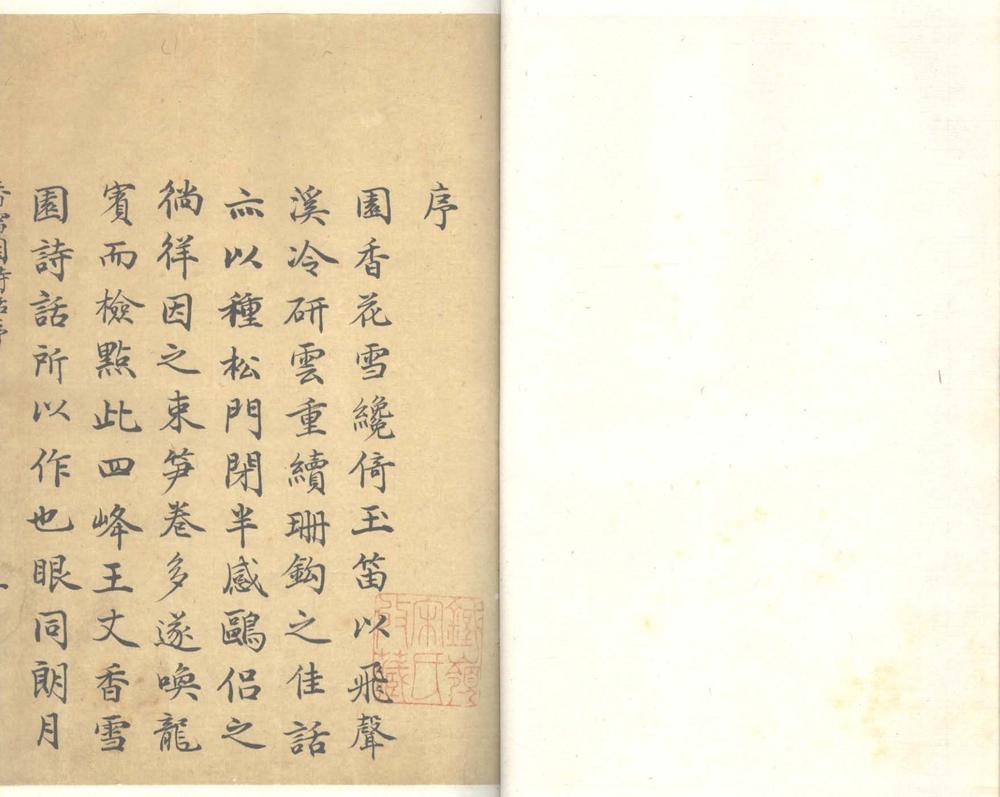 序
園香花雪纔倚玉笛以飛聲
溪冷研雲重續珊鈎之佳話
亦以種松門閉半感鷗侶之
徜徉因之束笋卷多遂喚龍
賓而檢點此四峰王丈香雪
園詩話所以作也眼同朗月
香雪園詩話序
鐵嶺
宋氏
收藏